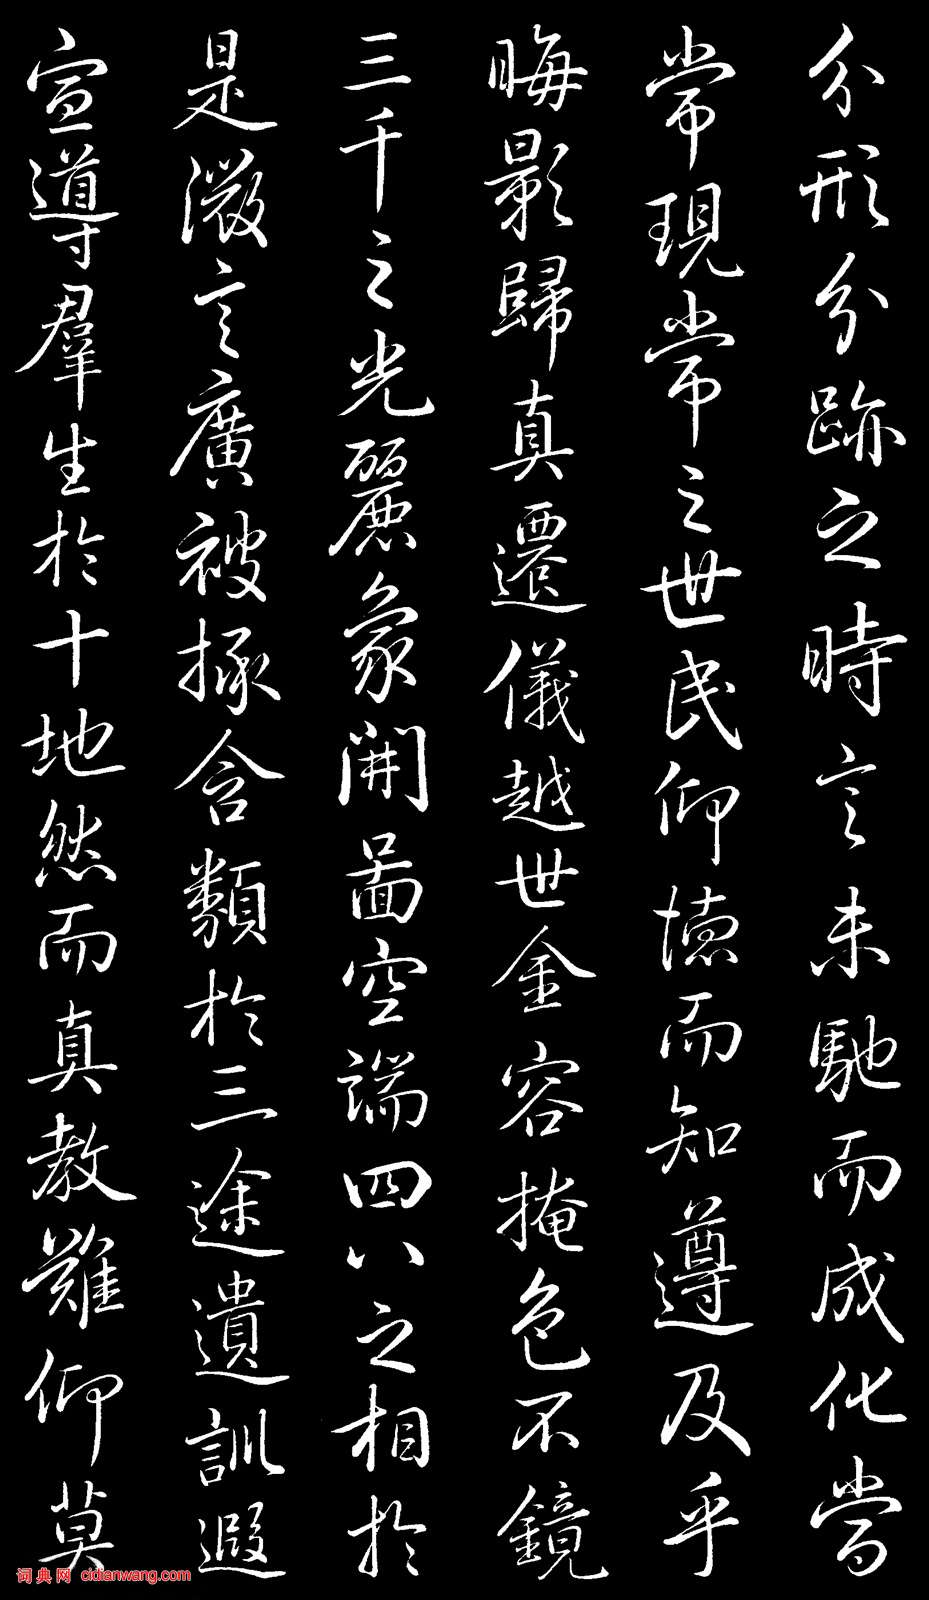 分形分跡之時言未馳而成化當
常現常之世民仰德而知遵及乎
晦影歸真遷儀越世金容掩色不鏡
三千之光麗象開啚空端四八之相於
是微言廣被拯含類於三途遺訓遐
宣導羣生於十地然而真教難仰莫
词典网 cidianwang.com